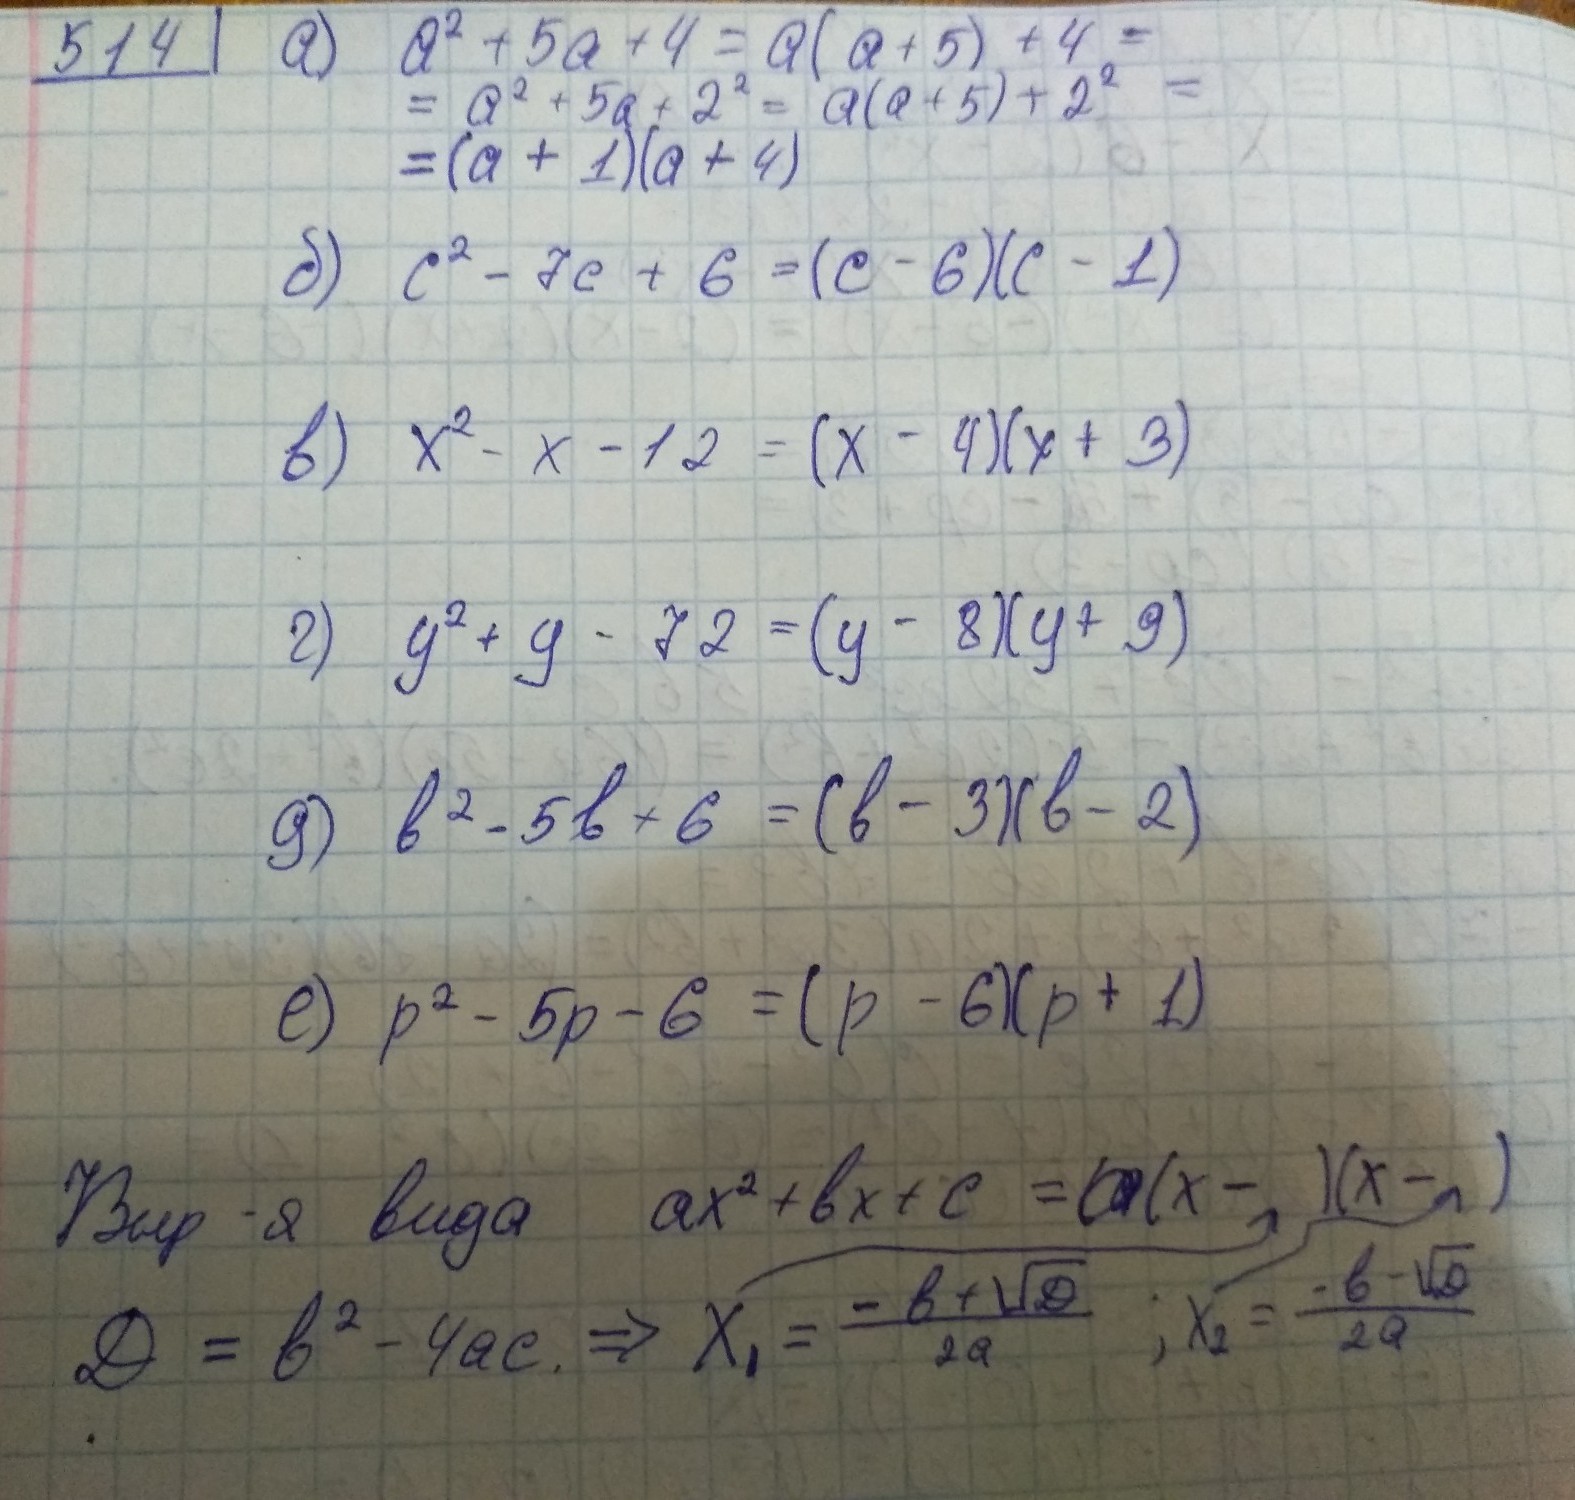 514 а) a² + 5a + 4 = a(a + 5) + 4 =
= a² + 5a + 2² = a(a + 5) + 2² =
= (a + 1)(a + 4)
б) c² - 7c + 6 = (c - 6)(c - 1)
в) x² - x - 12 = (x - 4)(x + 3)
г) y² + y - 72 = (y - 8)(y + 9)
д) b² - 5b + 6 = (b - 3)(b - 2)
е) p² - 5p - 6 = (p - 6)(p + 1)
Выр-я вида ax² + bx + c = a(x - )(x - )
D = b² - 4ac. ⇒ X₁ = (-b + √D)/2a ; x₂ = (-b - √D)/2a